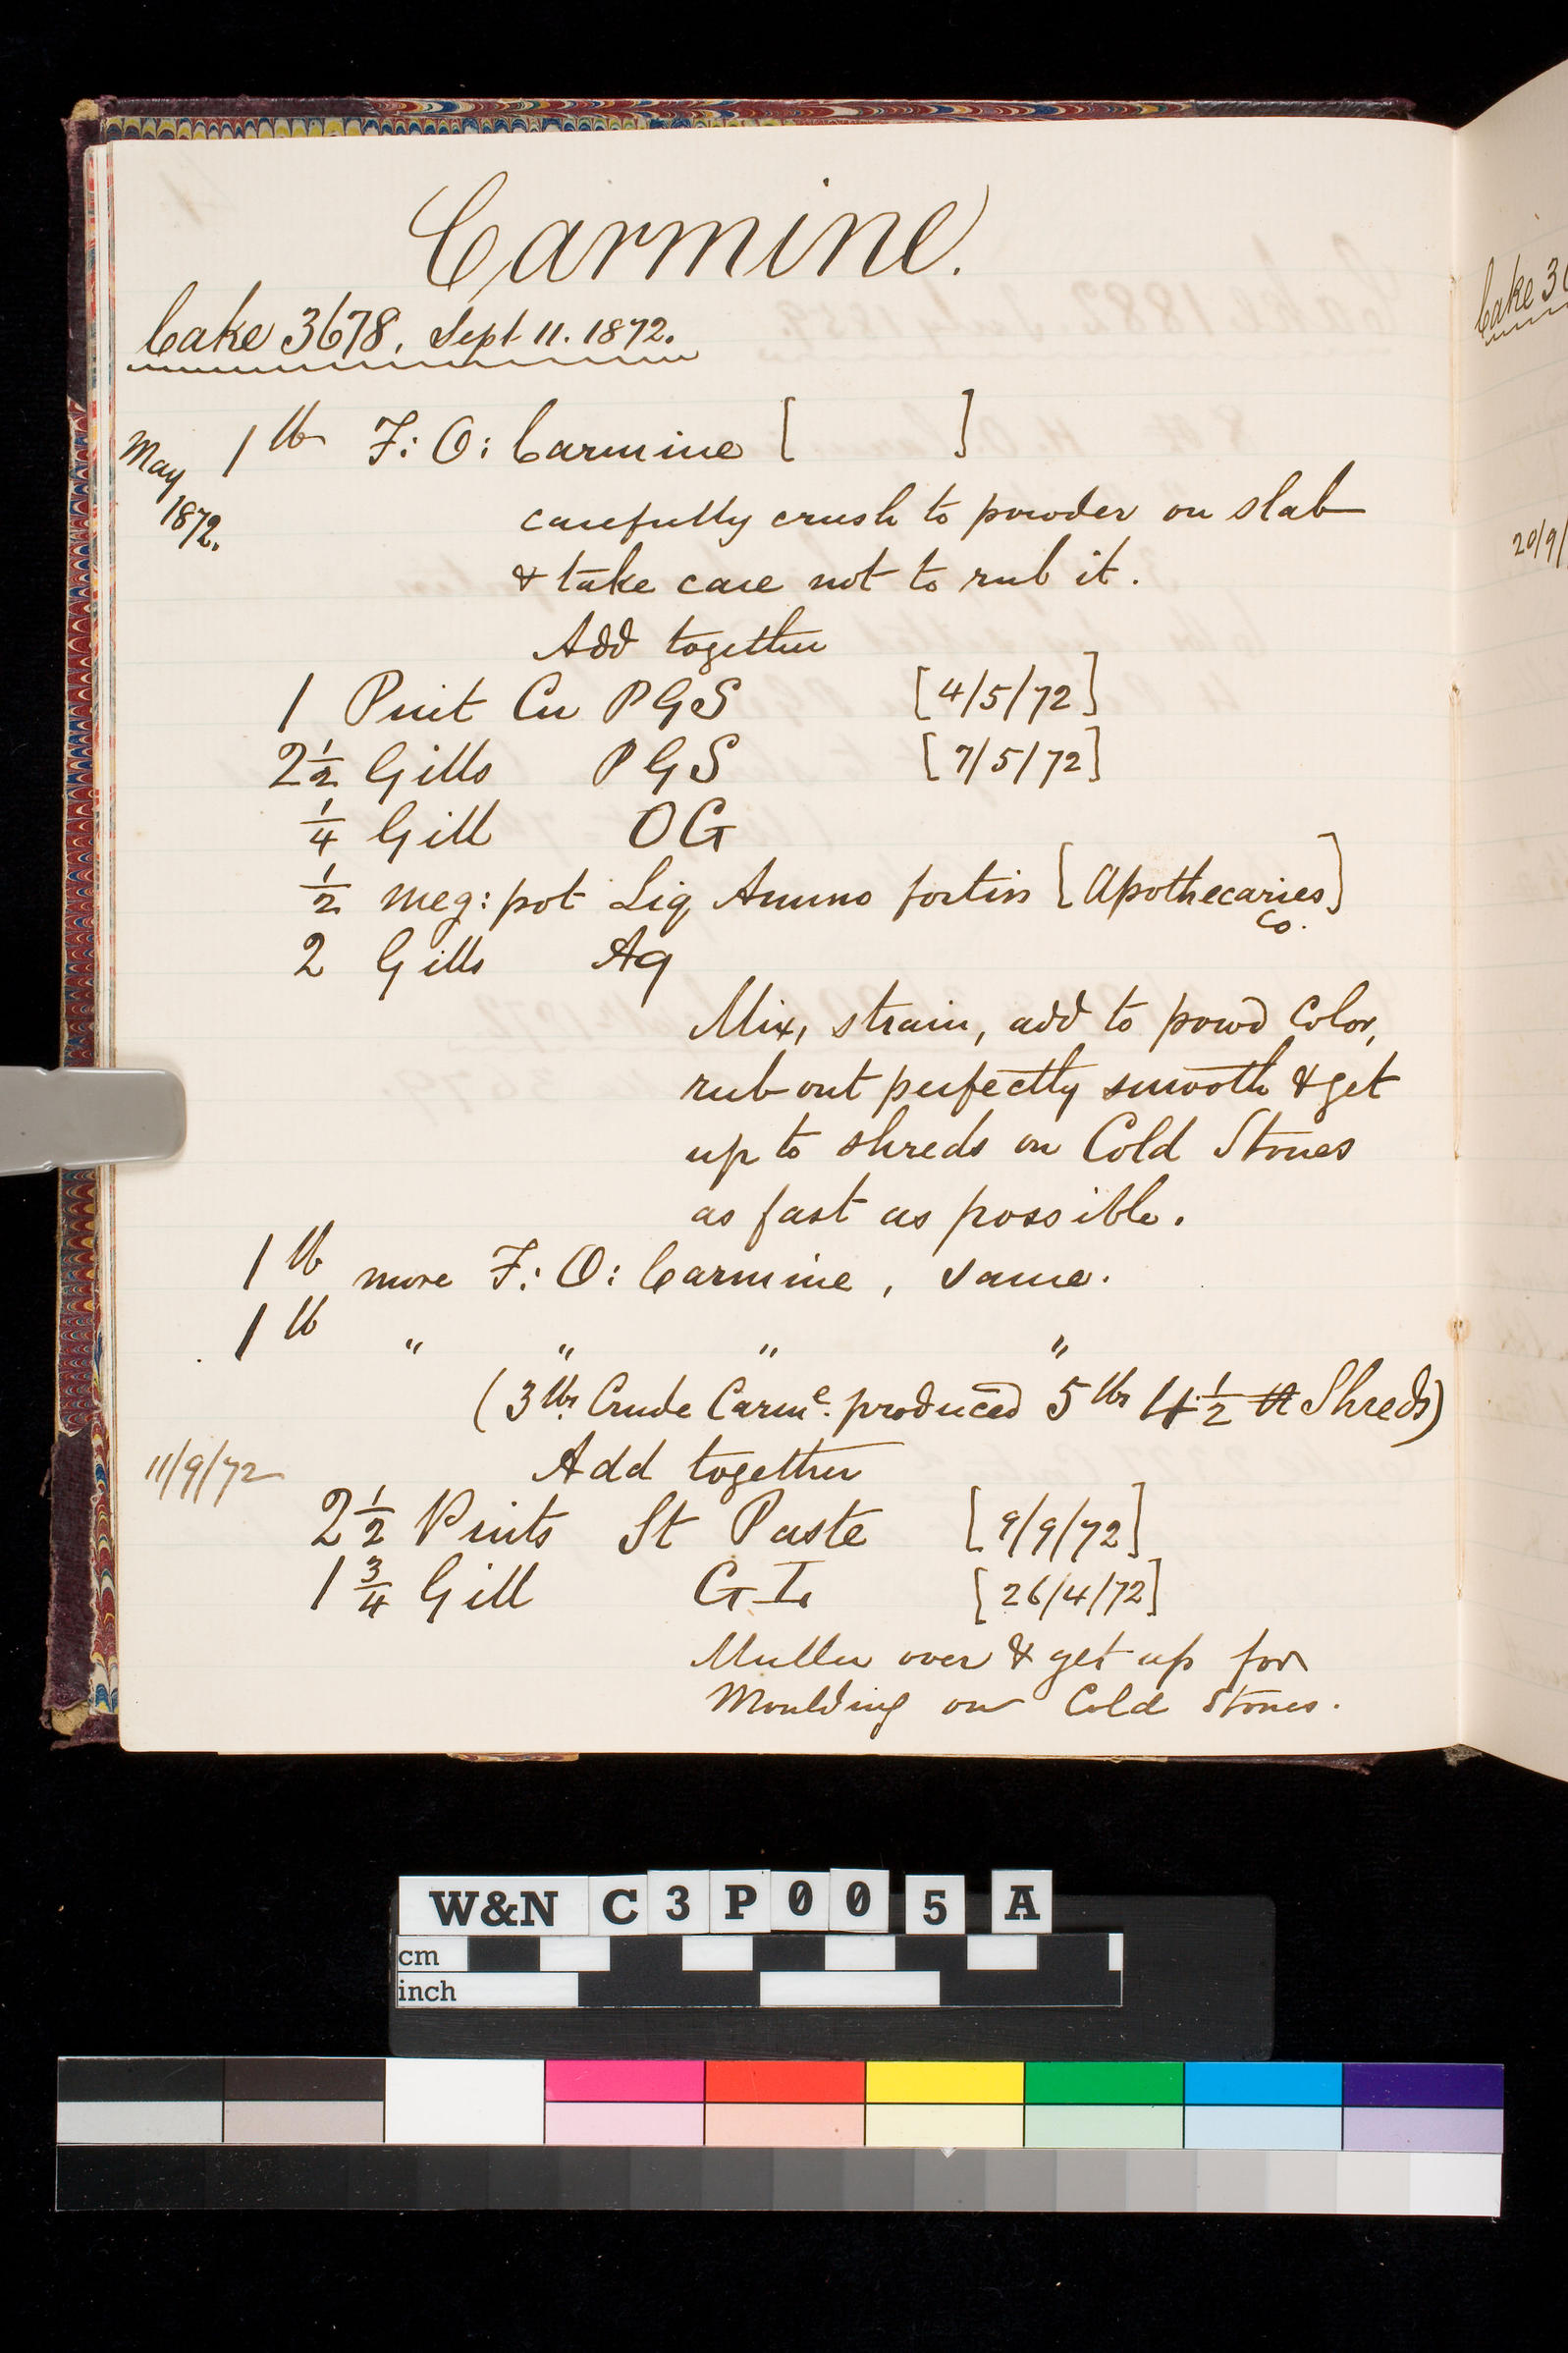 Carmine.
Cake 3678. Sept 11. 1872.
May 1872. 1 lb F: O: Carmine [ ]
carefully crush to powder on slab
& take care not to rub it.
Add together
1 Pint Cu PGS [4/5/72]
2½ Gills PGS [7/5/72]
¼ Gill OG
½ meg: pot Liq Ammo fortiss [Apothecaries Co.]
2 Gills Aq
Mix, strain, add to powd Color,
rub out perfectly smooth & get
up to shreds on Cold Stones
as fast as possible.
1 lb more F: O: Carmine, same.
1 lb " " " "
(3 lbs. Crude Carme. produced 5 lbs 4½ Shreds)
11/9/72 Add together
2½ Pints St Paste [9/9/72]
1¾ Gill GL [26/4/72]
Muller over & get up for
Moulding on Cold Stones.
Cake 36
20/9/
W&N C3P005A
cm
inch